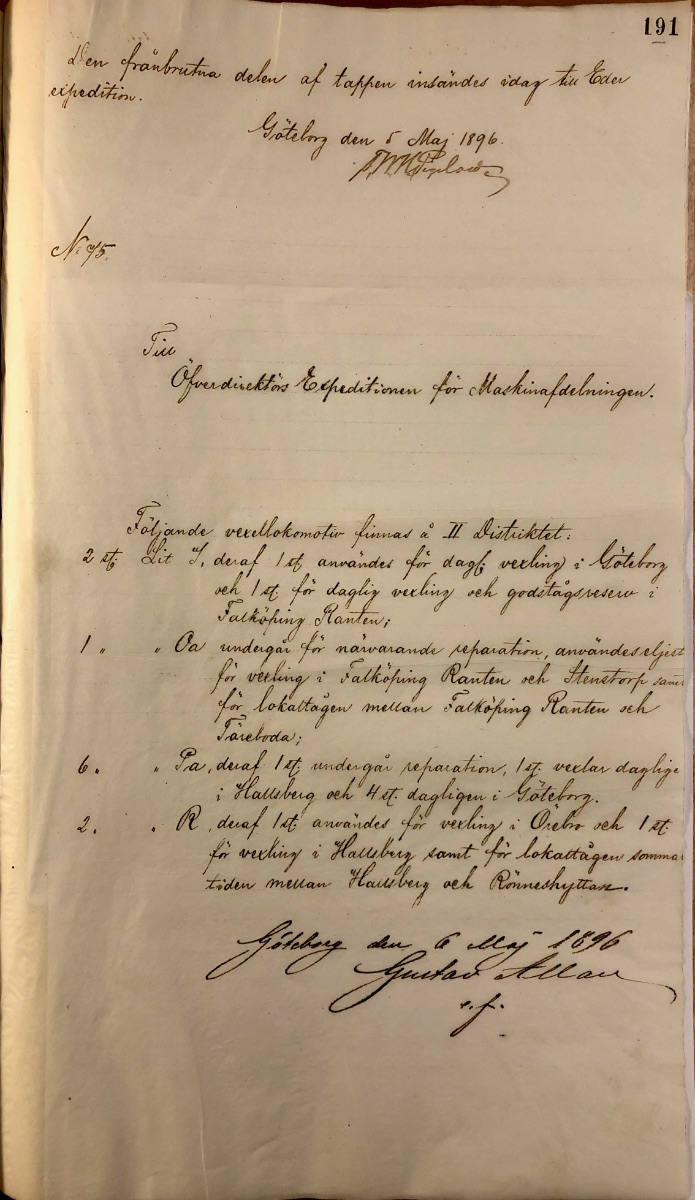 191
Den frånbrutna delen af tappen insändes idag till Eder
expedition.
Göteborg den 5 Maj 1896.
No 75.
Till
Öfverdirektörs Expeditionen för Maskinafdelningen.
Följande vexellokomotiv finnas å II Distriktet:
2 st. Lit I, deraf 1 st. användes för dagl. vexling i Göteborg
och 1 st. för daglig vexling och godstågsreserv i
Falköping Ranten;
1 " " Oa undergår för närvarande reparation, användes eljest
för vexling i Falköping Ranten och Stenstorp samt
för lokaltågen mellan Falköping Ranten och
Töreboda;
6 " " Pa, deraf 1 st. undergår reparation, 1 st. vexlar daglige
i Hallsberg och 4 st. dagligen i Göteborg.
2 " " R, deraf 1 st. användes för vexling i Örebro och 1 st.
för vexling i Hallsberg samt för lokaltågen somma
tiden mellan Hallsberg och Rönneshyttan.
Göteborg den 6 Maj 1896
Gustav Allan
e.f.